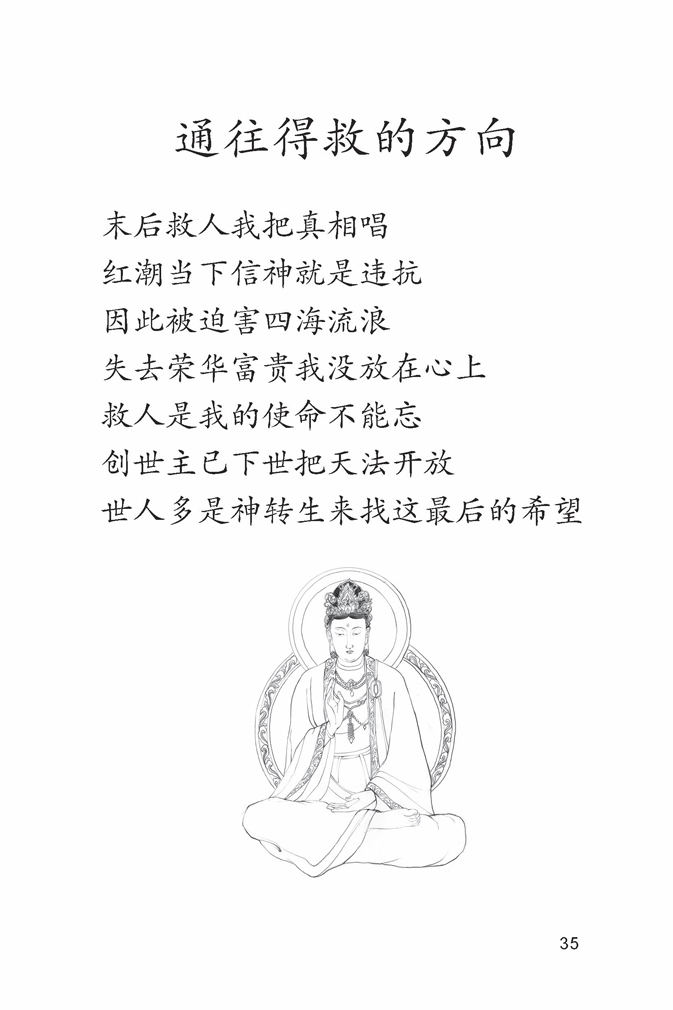 通往得救的方向
末后救人我把真相唱
红潮当下信神就是违抗
因此被迫害四海流浪
失去荣华富贵我没放在心上
救人是我的使命不能忘
创世主已下世把天法开放
世人多是神转生来找这最后的希望
35